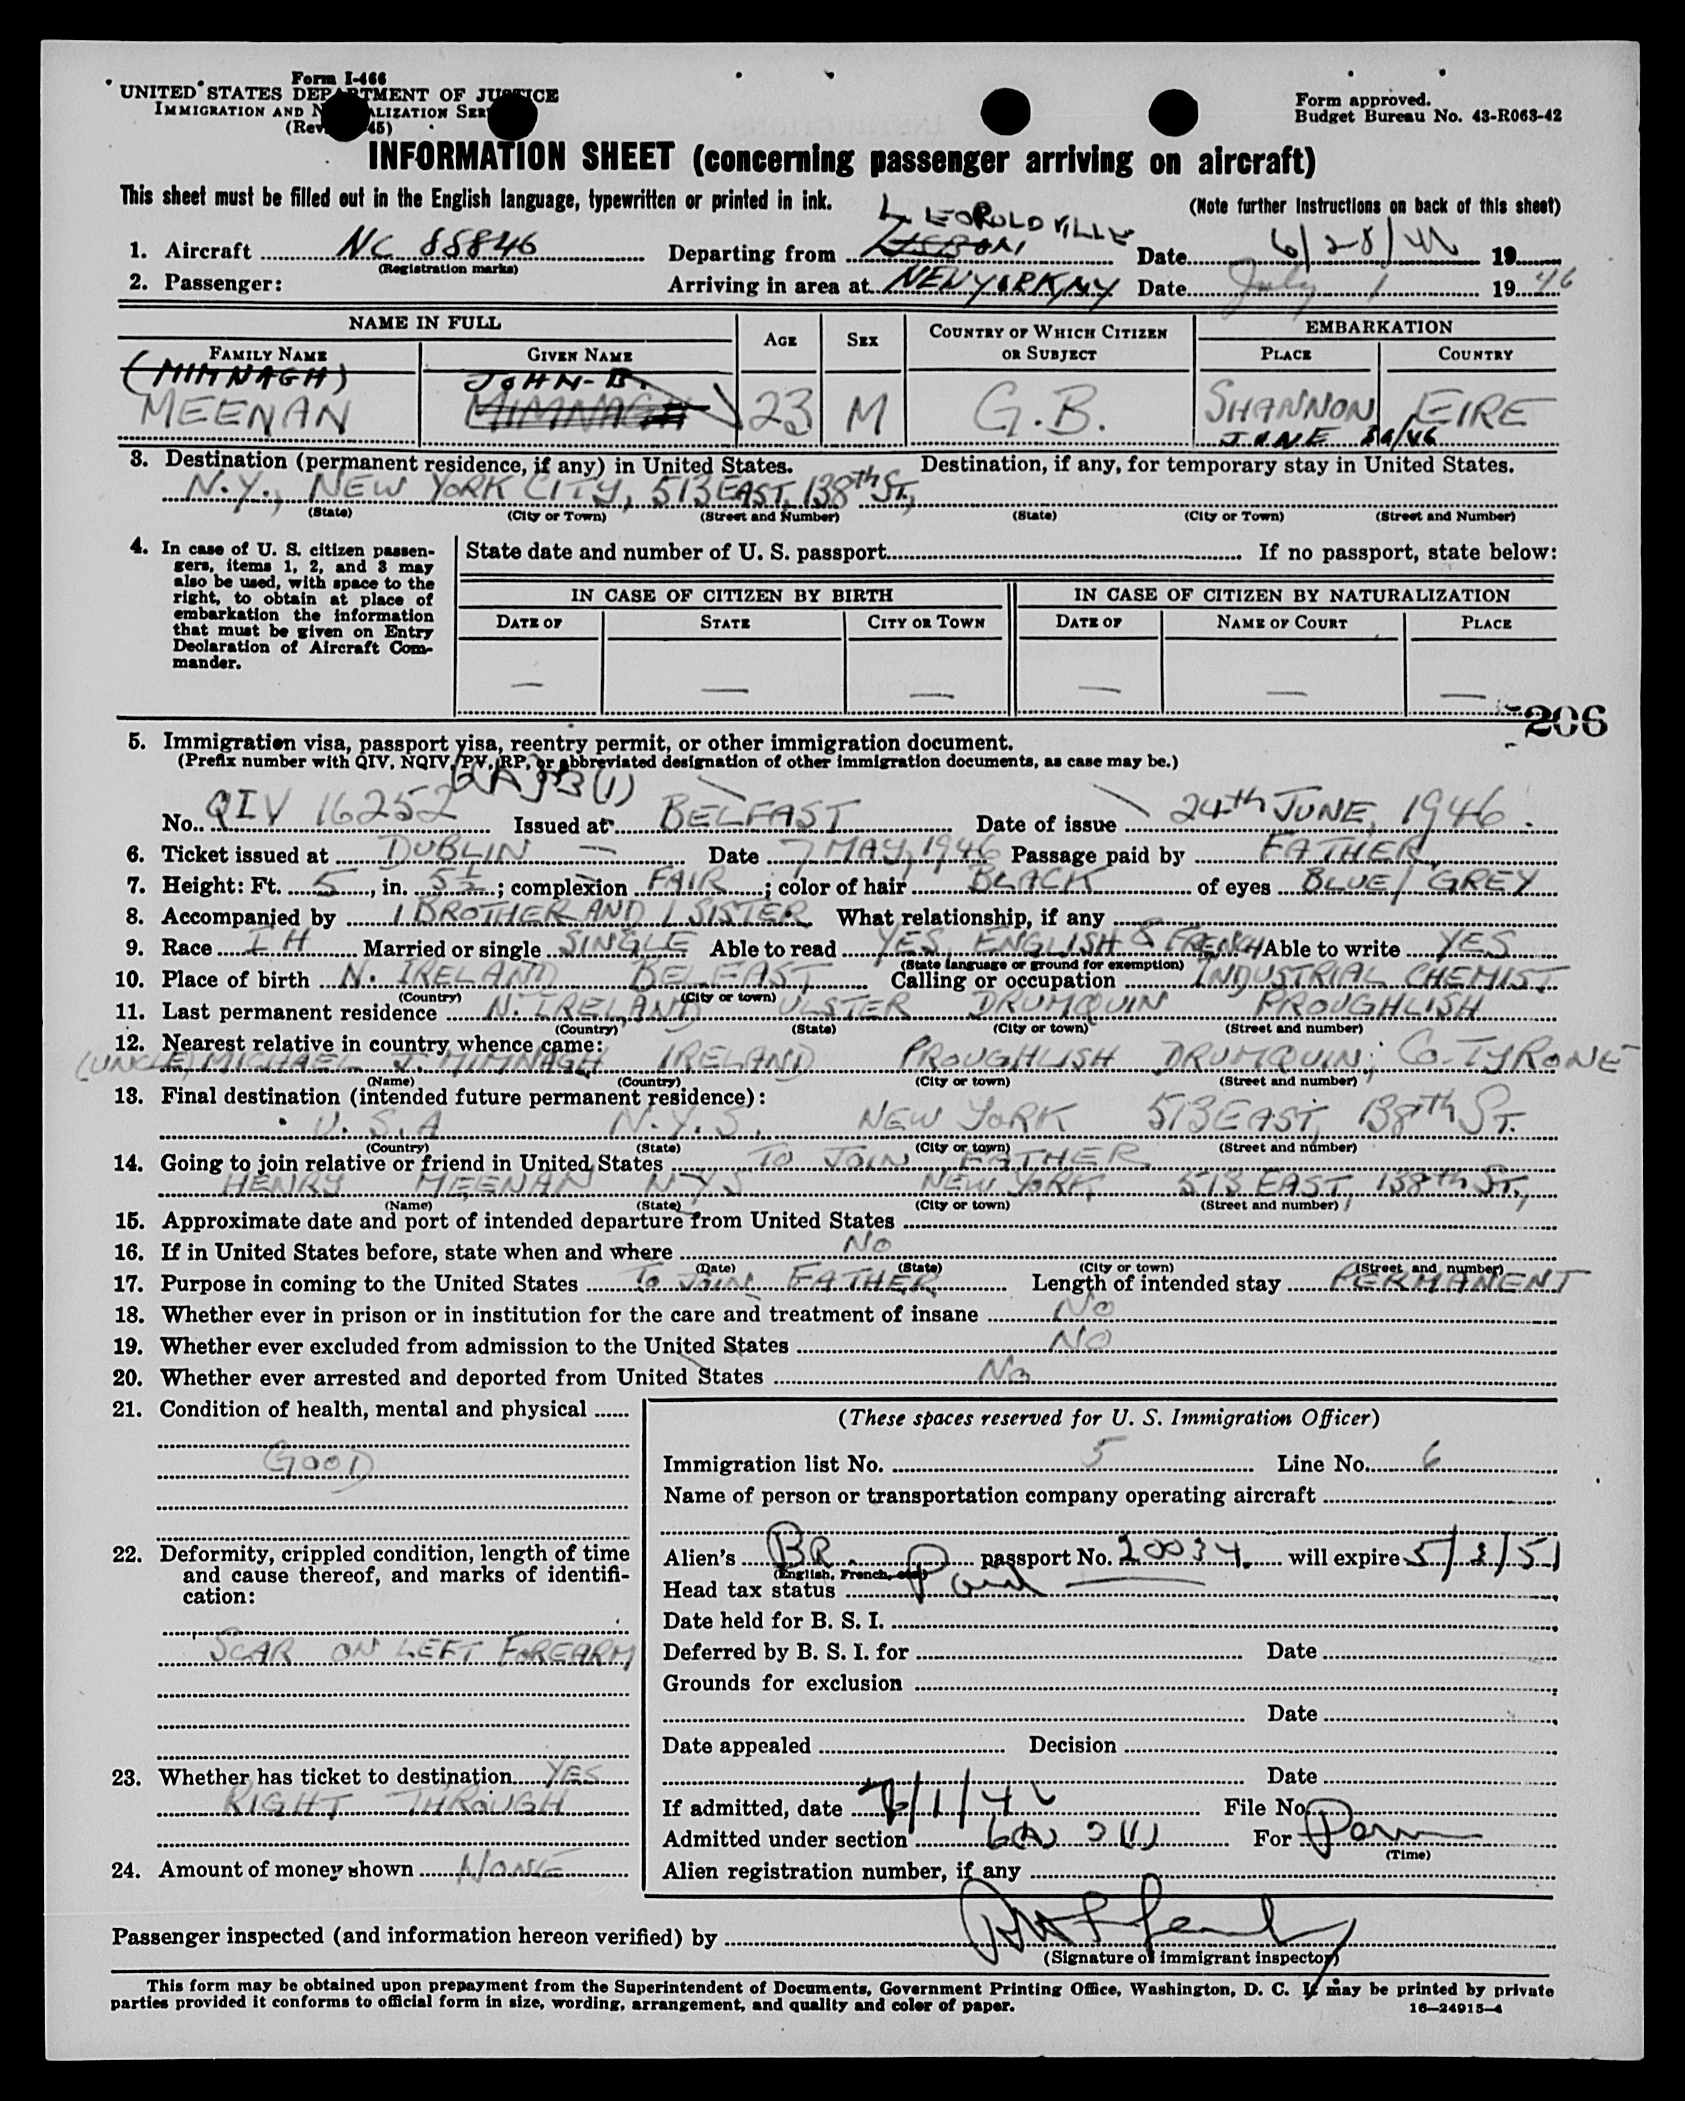 Form I-466
UNITED STATES DEPARTMENT OF JUSTICE
IMMIGRATION AND NATURALIZATION SER
(Rev. 45)
Form approved.
Budget Bureau No. 43-R063-42
INFORMATION SHEET (concerning passenger arriving on aircraft)
This sheet must be filled out in the English language, typewritten or printed in ink.
(Note further instructions on back of this sheet)
LEOPOLDVILLE
1. Aircraft NC 88846 Departing from Date 6/28/46 19
(Registration marks)
2. Passenger: Arriving in area at NEW YORK, NY Date July 1 1946
NAME IN FULL AGE SEX COUNTRY OF WHICH CITIZEN OR SUBJECT EMBARKATION
FAMILY NAME GIVEN NAME PLACE COUNTRY
(MIMNAGH) JOHN-B.
MEENAN MIMNAGH 23 M G.B. SHANNON EIRE
JUNE 30/46
3. Destination (permanent residence, if any) in United States. Destination, if any, for temporary stay in United States.
N.Y., NEW YORK CITY, 513 EAST, 138th ST,
(State) (City or Town) (Street and Number) (State) (City or Town) (Street and Number)
4. In case of U. S. citizen passengers, items 1, 2, and 3 may also be used, with space to the right, to obtain at place of embarkation the information that must be given on Entry Declaration of Aircraft Commander.
State date and number of U. S. passport If no passport, state below:
IN CASE OF CITIZEN BY BIRTH IN CASE OF CITIZEN BY NATURALIZATION
DATE OF STATE CITY OR TOWN DATE OF NAME OF COURT PLACE
— — — — — —
206
5. Immigration visa, passport visa, reentry permit, or other immigration document.
(Prefix number with QIV, NQIV, PV, RP, or abbreviated designation of other immigration documents, as case may be.)
6A 3(1)
No. QIV 16252 Issued at BELFAST Date of issue 24th JUNE, 1946.
6. Ticket issued at DUBLIN — Date 7 MAY, 1946 Passage paid by FATHER
7. Height: Ft. 5, in. 5½; complexion FAIR; color of hair BLACK of eyes BLUE/GREY
8. Accompanied by 1 BROTHER AND 1 SISTER. What relationship, if any
9. Race IH Married or single SINGLE Able to read YES, ENGLISH & FRENCH Able to write YES
(State language or ground for exemption)
10. Place of birth N. IRELAND BELFAST Calling or occupation INDUSTRIAL CHEMIST
(Country) (City or town)
11. Last permanent residence N. IRELAND ULSTER DRUMQUIN PROUGHLISH
(Country) (State) (City or town) (Street and number)
12. Nearest relative in country whence came:
(UNCLE) MICHAEL J. MIMNAGH IRELAND PROUGHLISH DRUMQUIN, CO. TYRONE
(Name) (Country) (City or town) (Street and number)
13. Final destination (intended future permanent residence):
U.S.A N.Y.S. NEW YORK 513 EAST, 138th ST.
(Country) (State) (City or town) (Street and number)
14. Going to join relative or friend in United States TO JOIN FATHER
HENRY MEENAN N.Y.S NEW YORK, 513 EAST, 138th ST.,
(Name) (State) (City or town) (Street and number)
15. Approximate date and port of intended departure from United States
16. If in United States before, state when and where NO
(Date) (State) (City or town) (Street and number)
17. Purpose in coming to the United States TO JOIN FATHER Length of intended stay PERMANENT
18. Whether ever in prison or in institution for the care and treatment of insane NO
19. Whether ever excluded from admission to the United States NO
20. Whether ever arrested and deported from United States NO
21. Condition of health, mental and physical
GOOD
22. Deformity, crippled condition, length of time and cause thereof, and marks of identification:
SCAR ON LEFT FOREARM
23. Whether has ticket to destination YES
RIGHT THROUGH
24. Amount of money shown NONE
(These spaces reserved for U. S. Immigration Officer)
Immigration list No. 5 Line No. 6
Name of person or transportation company operating aircraft
Alien's BR. passport No. 20034. will expire 5/3/51
(English, French, etc.)
Head tax status Paid
Date held for B. S. I.
Deferred by B. S. I. for Date
Grounds for exclusion
Date
Date appealed Decision
Date
If admitted, date 7/1/46 File No.
Admitted under section 6(A) 3(1) For Perm
(Time)
Alien registration number, if any
Passenger inspected (and information hereon verified) by
(Signature of immigrant inspector)
This form may be obtained upon prepayment from the Superintendent of Documents, Government Printing Office, Washington, D. C. It may be printed by private
parties provided it conforms to official form in size, wording, arrangement, and quality and color of paper.
16—24915-4